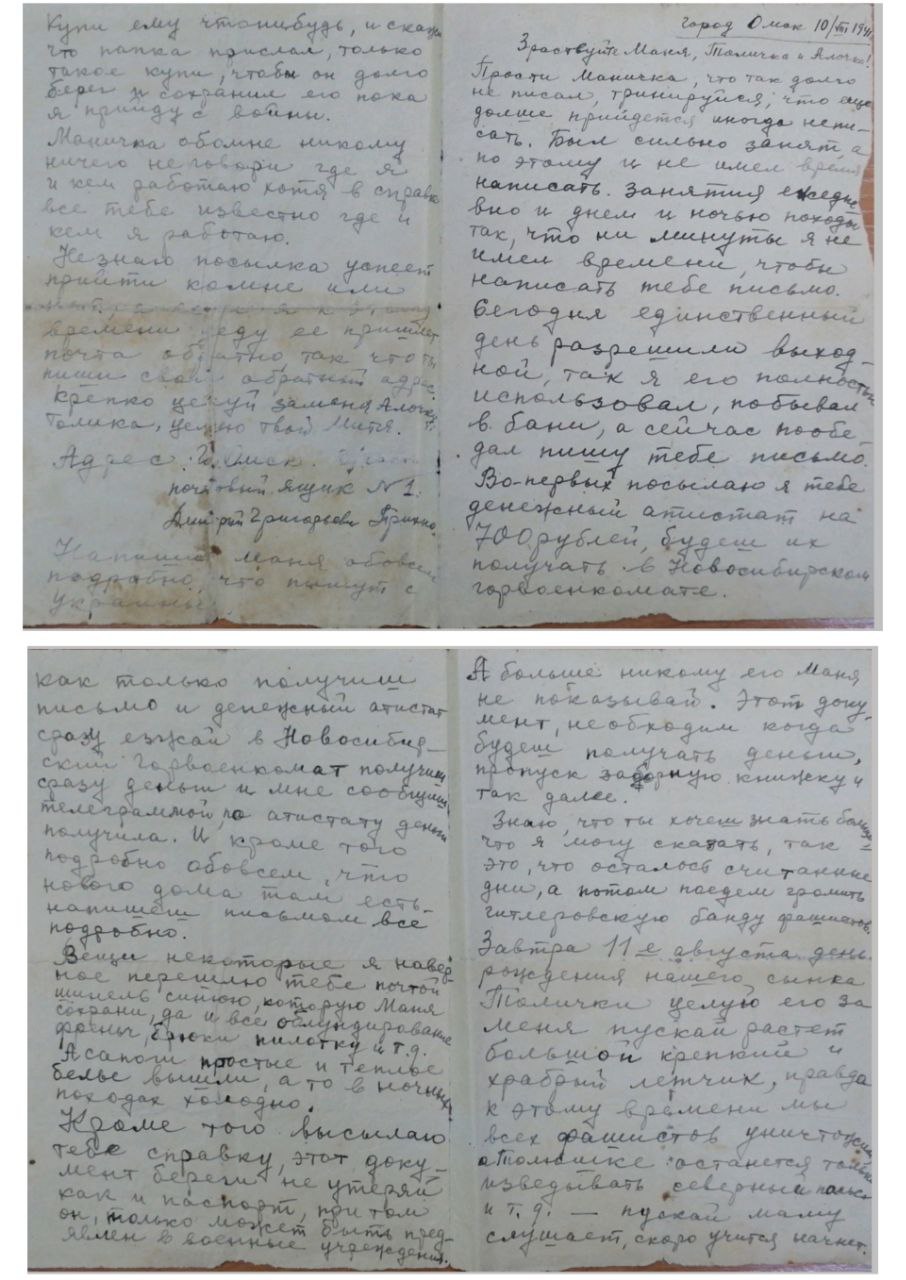 город Омск 10/VIII 1941
Зраствуйте Маня, Толичка и Алочка!
Прости Маничка, что так долго
не писал, тринируйся, что ещё
долше прийдется иногда непи-
сать. Был сильно занят а
по этому и не имел время
написать. Занятия ежедне
вно и днем и ночью походы
так, что ни минуты я не
имел времени, чтобы
написать тебе письмо.
Сегодня единственный
день разрешили выход-
ной, так я его полностью
использовал, побывал
в бани, а сейчас пообе-
дал пишу тебе письмо.
Во-первых посылаю я тебе
денежный атистат на
700 рублей, будеш их
получать в Новосибирском
горвоенкомате.
как только получиш
письмо и денежный атистат
сразу езжай в Новосибир-
ский Горвоенкомат получиш
сразу деньги и мне сообщиш
телеграммой, по атистату деньги
получила. И кроме того
подробно обовсем, что
нового дома там есть-
напишеш письмом все
подробно.
Вещи некоторые я навер-
ное перешлю тебе почтой
шинель синюю, которую Маня
сохрани, да и все обмундирование
френч, брюки пилотку и т.д.
А сапоги простые и теплое
белье вышли, а то в ночных
походах холодно.
Кроме того высылаю
тебе справку, этот доку-
мент береги не утеряй
как и паспорт, при том
он, только может быть пред-
явлен в военные учреждения.
А больше никому его Маня
не показывай. Этот доку-
мент, необходим когда
будеш получать деньги,
пропуск заборную книжку и
так далее.
Знаю, что ты хочеш знать больше
что я могу сказать, так
это, что осталось считанные
дни, а потом поедем громить
гитлеровскую банду фашистов.
Завтра 11е августа день
рождения нашего сынка
Толички целую его за
меня пускай растет
большой крепкий и
храбрый летчик, правда
к этому времени мы
всех фашистов уничтожим
а Толюшке останется только
изведывать северный полюс
и т.д. — пускай маму
слушает, скоро учится начнет.
Купи ему чтонибудь, и скажи
что папка прислал, только
такое купи, чтобы он долго
берег и сохранил его пока
я прийду с войны.
Маничка обомне никому
ничего не говори где я
и кем работаю хотя в справке
все тебе известно где и
кем я работаю.
Незнаю посылка успеет
прийти комне или
времени уеду ее пришлет
почта обратно так что ты
пиши свой обратный адрес.
Крепко целуй заменя Алочку
Толика, целую твой Митя.
Адрес: Г. Омск.
почтовый ящик №1.
Дмитрий Григорьевич
Напиши Маня обовсем
подробно, что пишут с
Украины